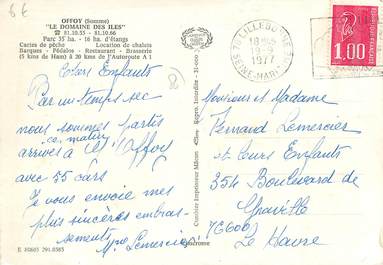 6€
OFFOY (Somme)
"LE DOMAINE DES ILES"
☎ 81.10.55 - 81.10.66
Parc 35 ha. - 16 ha. d'étangs
Cartes de pêche Location de chalets
Barques - Pédalos - Restaurant - Brasserie
(5 kms de Ham) à 20 kms de l'Autoroute A 1
Chers Enfants
Par un temps sec
nous sommes partis
ce matin
arrivés à l'Offoy
avec 55 cars
Je vous envoie mes
plus sincères embras-
sements Mme Lemercier
E 80605 291.0385
Combier Imprimeur Mâcon
Repro. Interdite - 31-000
76 LILLEBONNE
18H
1977
SEINE-MARITIME
1.00
Monsieur et Madame
Fernand Lemercier
et Leurs Enfants
354 Boulevard de
Graville
76600
Le Havre